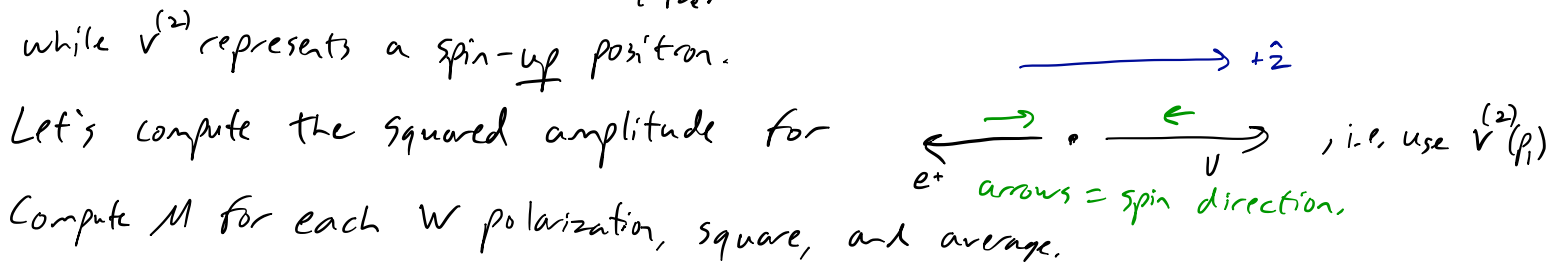 while v^(2) represents a spin-up positron.
+ẑ
Let's compute the squared amplitude for
e⁺ ν , i.e. use v^(2)(p₁)
arrows = spin direction.
Compute M for each W polarization, square, and average.